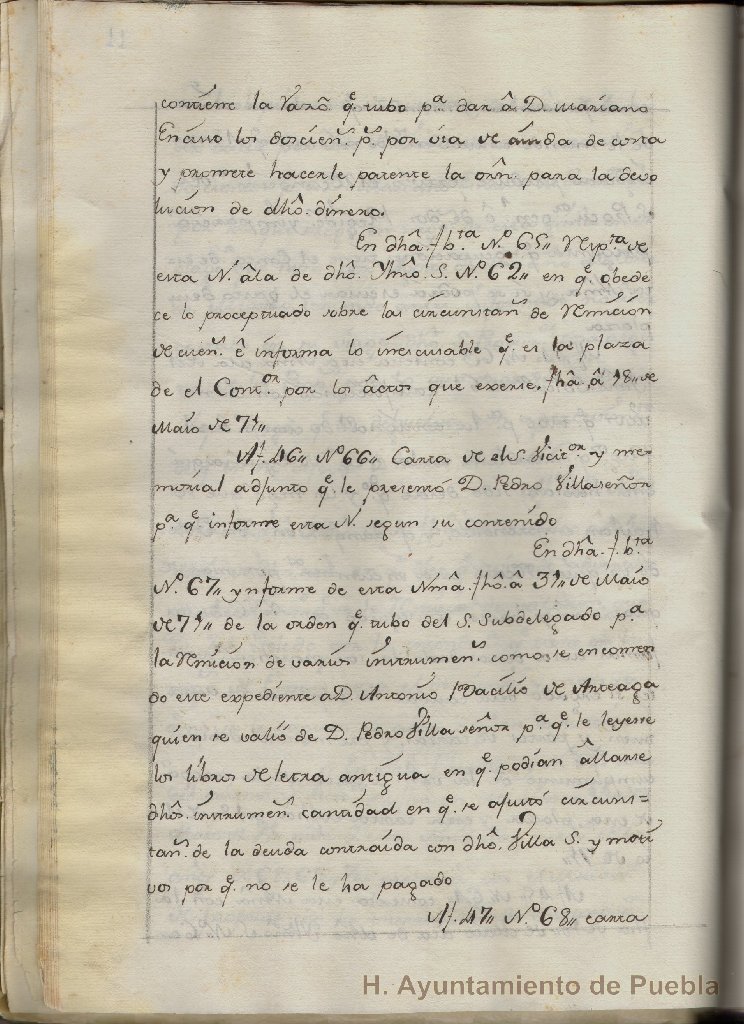 contiene la razõ. q̃. tubo pª. dar â D. Mariano
Enciso los doscienˢ. pˢ. por via de aiuda de costa
y promete hacerle patente la orñ. para la devo
lucion de dhõ. dinero.
En dhâ. f. bᵗᵃ Nº. 65,, Resptª de
esta N. âla de dhõ. Yltmõ. S. Nº. 62,, en q̃. obede
ce lo preceptuado sobre las circunstanˢ. de Remicion
de cuenˢ. ê informa lo inescusable q̃. es la plaza
de el Contᵒʳ. por los âctos que exerse. fhâ. â 18,, de
Maio de 71,,
Af. 46,, Nº 66,, Carta de el S. Vicitᵒʳ. y me-
morial adjunto q̃. le presentó D. Pedro Villaseñor
pª. q̃. informe esta N. segun su contenido
En dhâ. f. bᵗᵃ
Nº. 67,, ynforme de esta Nmâ. fhô. â 31,, de Maio
de 71,, de la orden q̃. tubo del S. Subdelegado pª.
la Remicion de varios instrumenˢ. como se encomen
do este expediente a D. Antonio Vacilio de Arteaga
quien se valió de D. Pedro Villa señor pª. q̃. le leyesse
los libros de letra antigua en q̃. podian âllarse
dhôs. instrumenˢ. cantidad en q̃. se ajustó circuns=
tanˢ. de la deuda contraida con dhô. Villa S. y moti
vos por q̃. no se le ha pagado
Af. 47,, Nº. 68,, carta
H. Ayuntamiento de Puebla